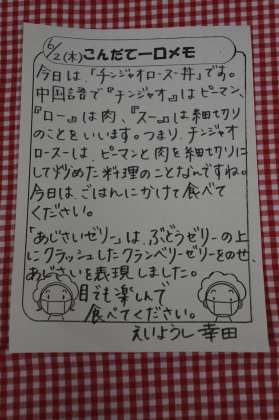 6/2(木)こんだて一口メモ
今日は、『チンジャオロースー丼』です。
中国語で『チンジャオ』はピーマン、
『ロー』は肉、『スー』は細切り
のことをいいます。つまり、チンジャオ
ロースーは、ピーマンと肉を細切りに
して炒めた料理のことなんですね。
今日は、ごはんにかけて食べて
ください。
「あじさいゼリー」は、ぶどうゼリーの上
にクラッシュしたクランベリーゼリーをのせ、
あじさいを表現しました。
目でも楽しんで
食べてください。
えいようし 幸田